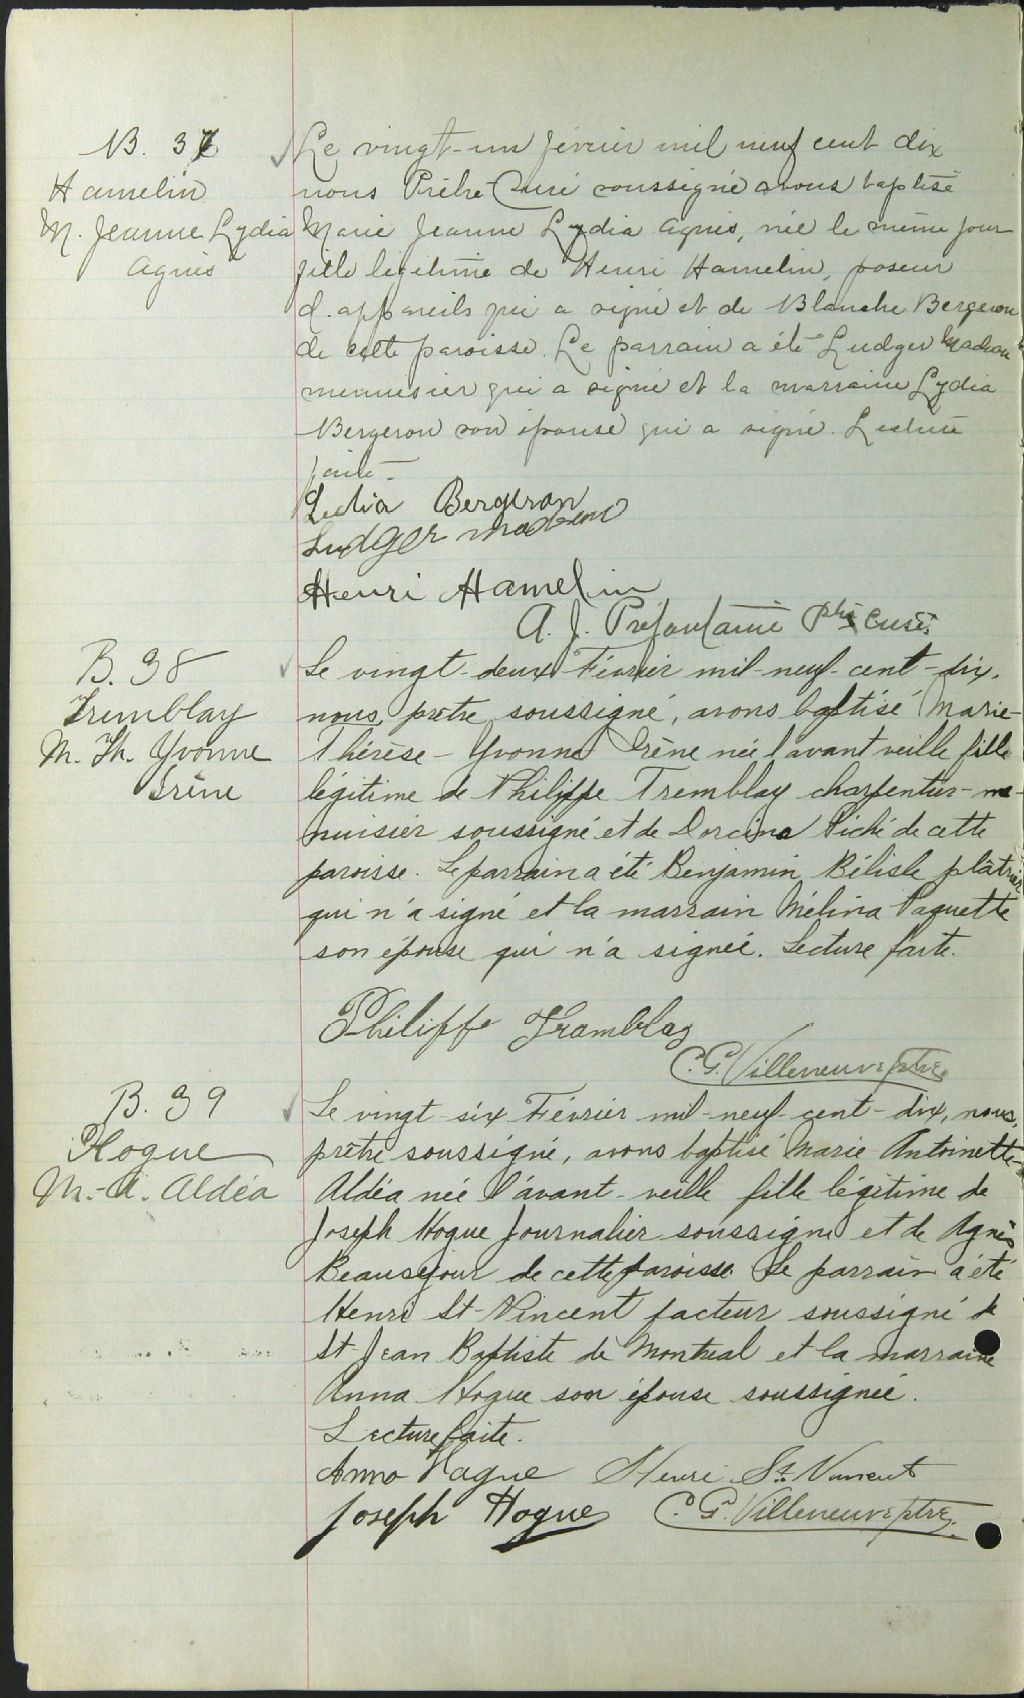 B. 37
Hamelin
M. Jeanne Lydia
Agnès
Le vingt-un février mil neuf cent dix
nous Prêtre Curé soussigné avons baptisé
Marie Jeanne Lydia Agnès, née le même jour
fille légitime de Henri Hamelin, poseur
d'appareils qui a signé et de Blanche Bergeron
de cette paroisse. Le parrain a été Ludger
menuisier qui a signé et la marraine Lydia
Bergeron son épouse qui a signé. Lecture
faite.
Lydia Bergeron
Ludger
Henri Hamelin
A. J. Préfontaine Ptre Curé
B. 38
Tremblay
M. Th. Yvonne
Irène
Le vingt-deux Février mil-neuf-cent-dix,
nous, prêtre soussigné, avons baptisé Marie-
Thérèse-Yvonne Irène née l'avant veille fille
légitime de Philippe Tremblay charpentier-me-
nuisier soussigné et de Dorcina Piché de cette
paroisse. Le parrain a été Benjamin Bélisle plâtrier
qui n'a signé et la marrain Mélina Paquette
son épouse qui n'a signée. Lecture faite.
Philippe Tramblay
C. G. Villeneuve ptre.
B. 39
Hogue
M.-A. Aldéa
Le vingt-six Février mil-neuf-cent-dix, nous,
prêtre soussigné, avons baptisé Marie Antoinette-
Aldéa née l'avant-veille fille légitime de
Joseph Hogue Journalier soussigné et de Agnès
Beauséjour de cette paroisse. Le parrain a été
Henri St-Vincent facteur soussigné de
St Jean Baptiste de Montreal et la marraine
Anna Hogue son épouse soussignée.
Lecture faite.
Anna Hogue Henri St. Vincent
Joseph Hogue C. G. Villeneuve ptre.